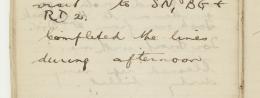 visit to SN, BG &
RD 2.
Completed the lines
during afternoon